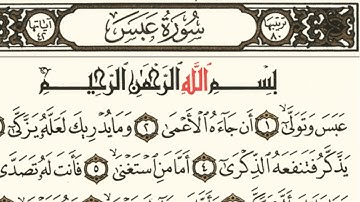 ترتيبها ٨٠ سُورَةُ عَبَسَ آياتها ٤٢
بِسْمِ اللَّهِ الرَّحْمَٰنِ الرَّحِيمِ
عَبَسَ وَتَوَلَّىٰٓ ١ أَن جَآءَهُ الْأَعْمَىٰ ٢ وَمَا يُدْرِيكَ لَعَلَّهُۥ يَزَّكَّىٰٓ
يَذَّكَّرُ فَتَنفَعَهُ الذِّكْرَىٰٓ ٤ أَمَّا مَنِ اسْتَغْنَىٰ ٥ فَأَنتَ لَهُۥ تَصَدَّىٰ